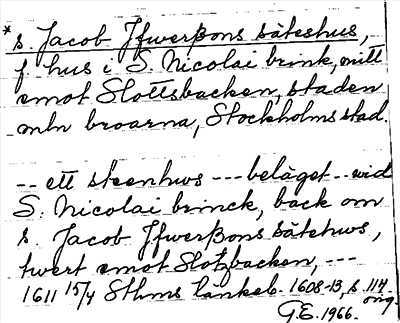 *s. Jacob Jfwerßons säteshus,
f. hus i S. Nicolai brink, mitt
emot Slottsbacken, staden
mln broarna, Stockholms stad.
-- ett steenhws --- beläget -- wid
S. Nicolai brinck, back om
s. Jacob Jfwerßons sätehws,
twert emot Slotzbacken, ---
1611 15/4 Sthms tänkeb. 1608-13, s. 114
orig.
G.E. 1966.